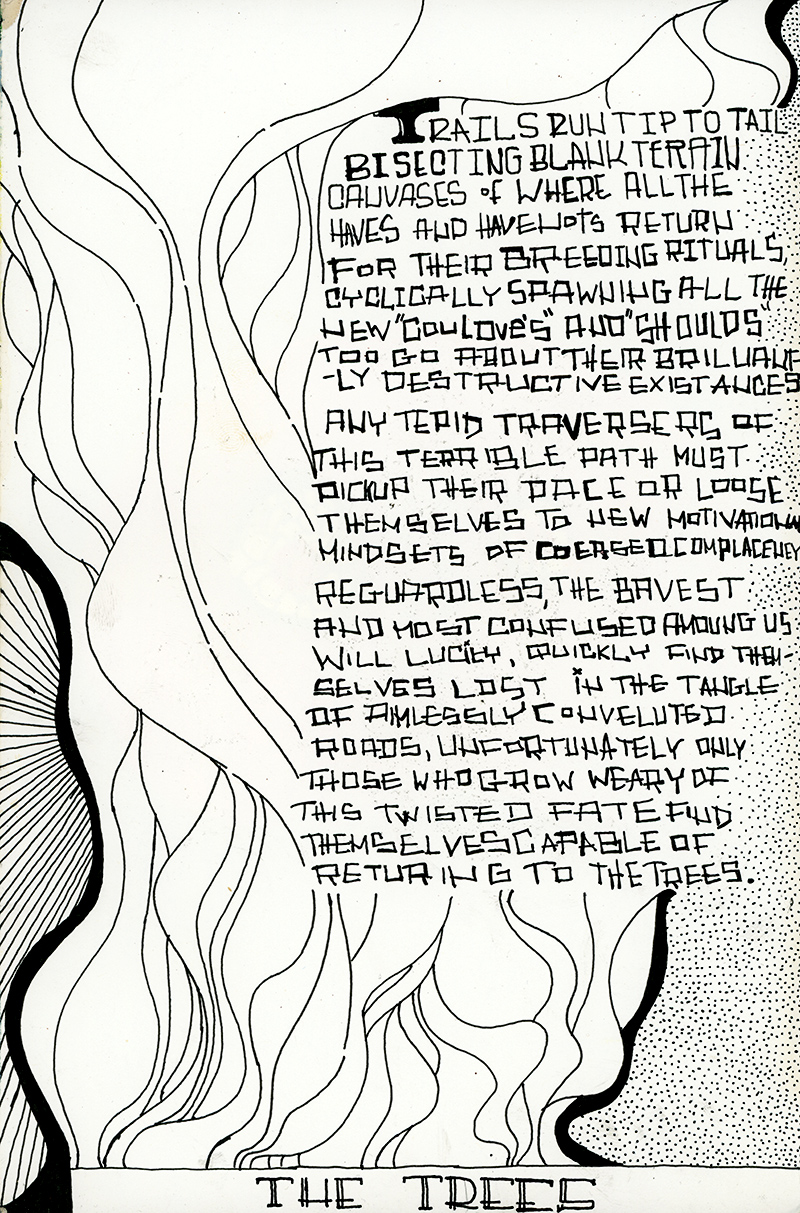 TRAILS RUN TIP TO TAIL
BISECTING BLANK TERAIN
CANVASES of WHERE ALL THE
HAVES AND HAVENOTS RETURN
FOR THEIR BREEDING RITUALS,
CYCLICALLY SPAWNING ALL THE
NEW "COULOVE'S" AND "SHOULDS"
TOO GO ABOUT THEIR BRILLIANT
-LY DESTRUCTIVE EXISTANCES
ANY TEPID TRAVERSERS OF
THIS TERRIBLE PATH MUST
PICKUP THEIR PACE OR LOOSE
THEMSELVES TO NEW MOTIVATIONAL
MINDSETS OF COERSED COMPLACENCY
REGUARDLESS, THE BAVEST
AND MOST CONFUSED AMOUNG US
WILL LUCILY, QUICKLY FIND THEM-
SELVES LOST IN THE TANGLE
OF AIMLESSLY CONVELUTED
ROADS, UNFORTUNATELY ONLY
THOSE WHO GROW WEARY OF
THIS TWISTED FATE FIND
THEMSELVES CAPABLE OF
RETURING TO THE TREES.
THE TREES